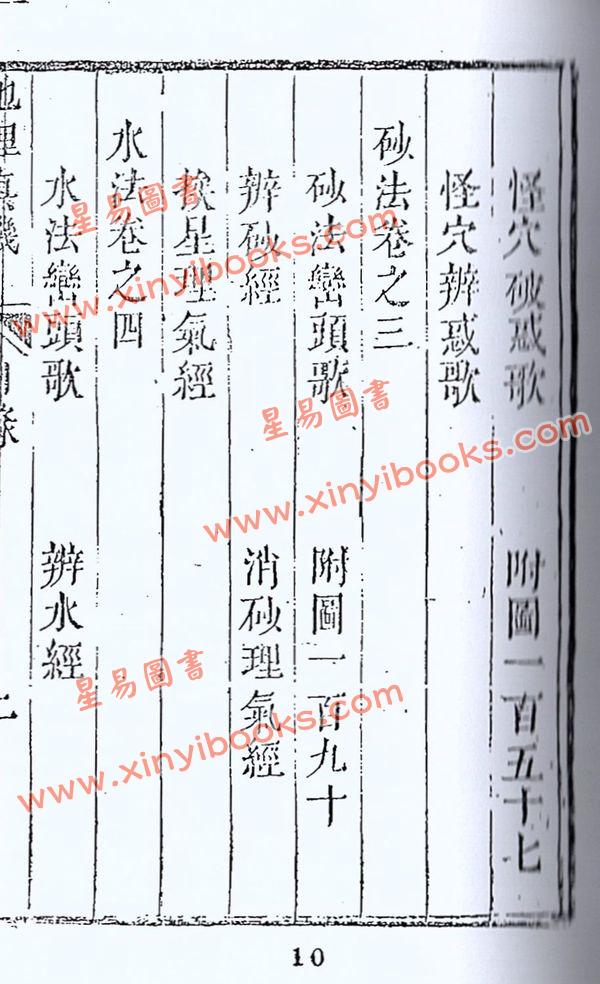 怪穴破惑歌 附圖一百五十七
怪穴辨惑歌
砂法卷之三
砂法巒頭歌 附圖一百九十
辨砂經 消砂理氣經
挨星理氣經
水法卷之四
水法巒頭歌 辨水經
地理真機 目錄 二
10
星易圖書
www.xinyibooks.com
星易圖書
www.xinyibooks.com
星易圖書
www.xinyibooks.com